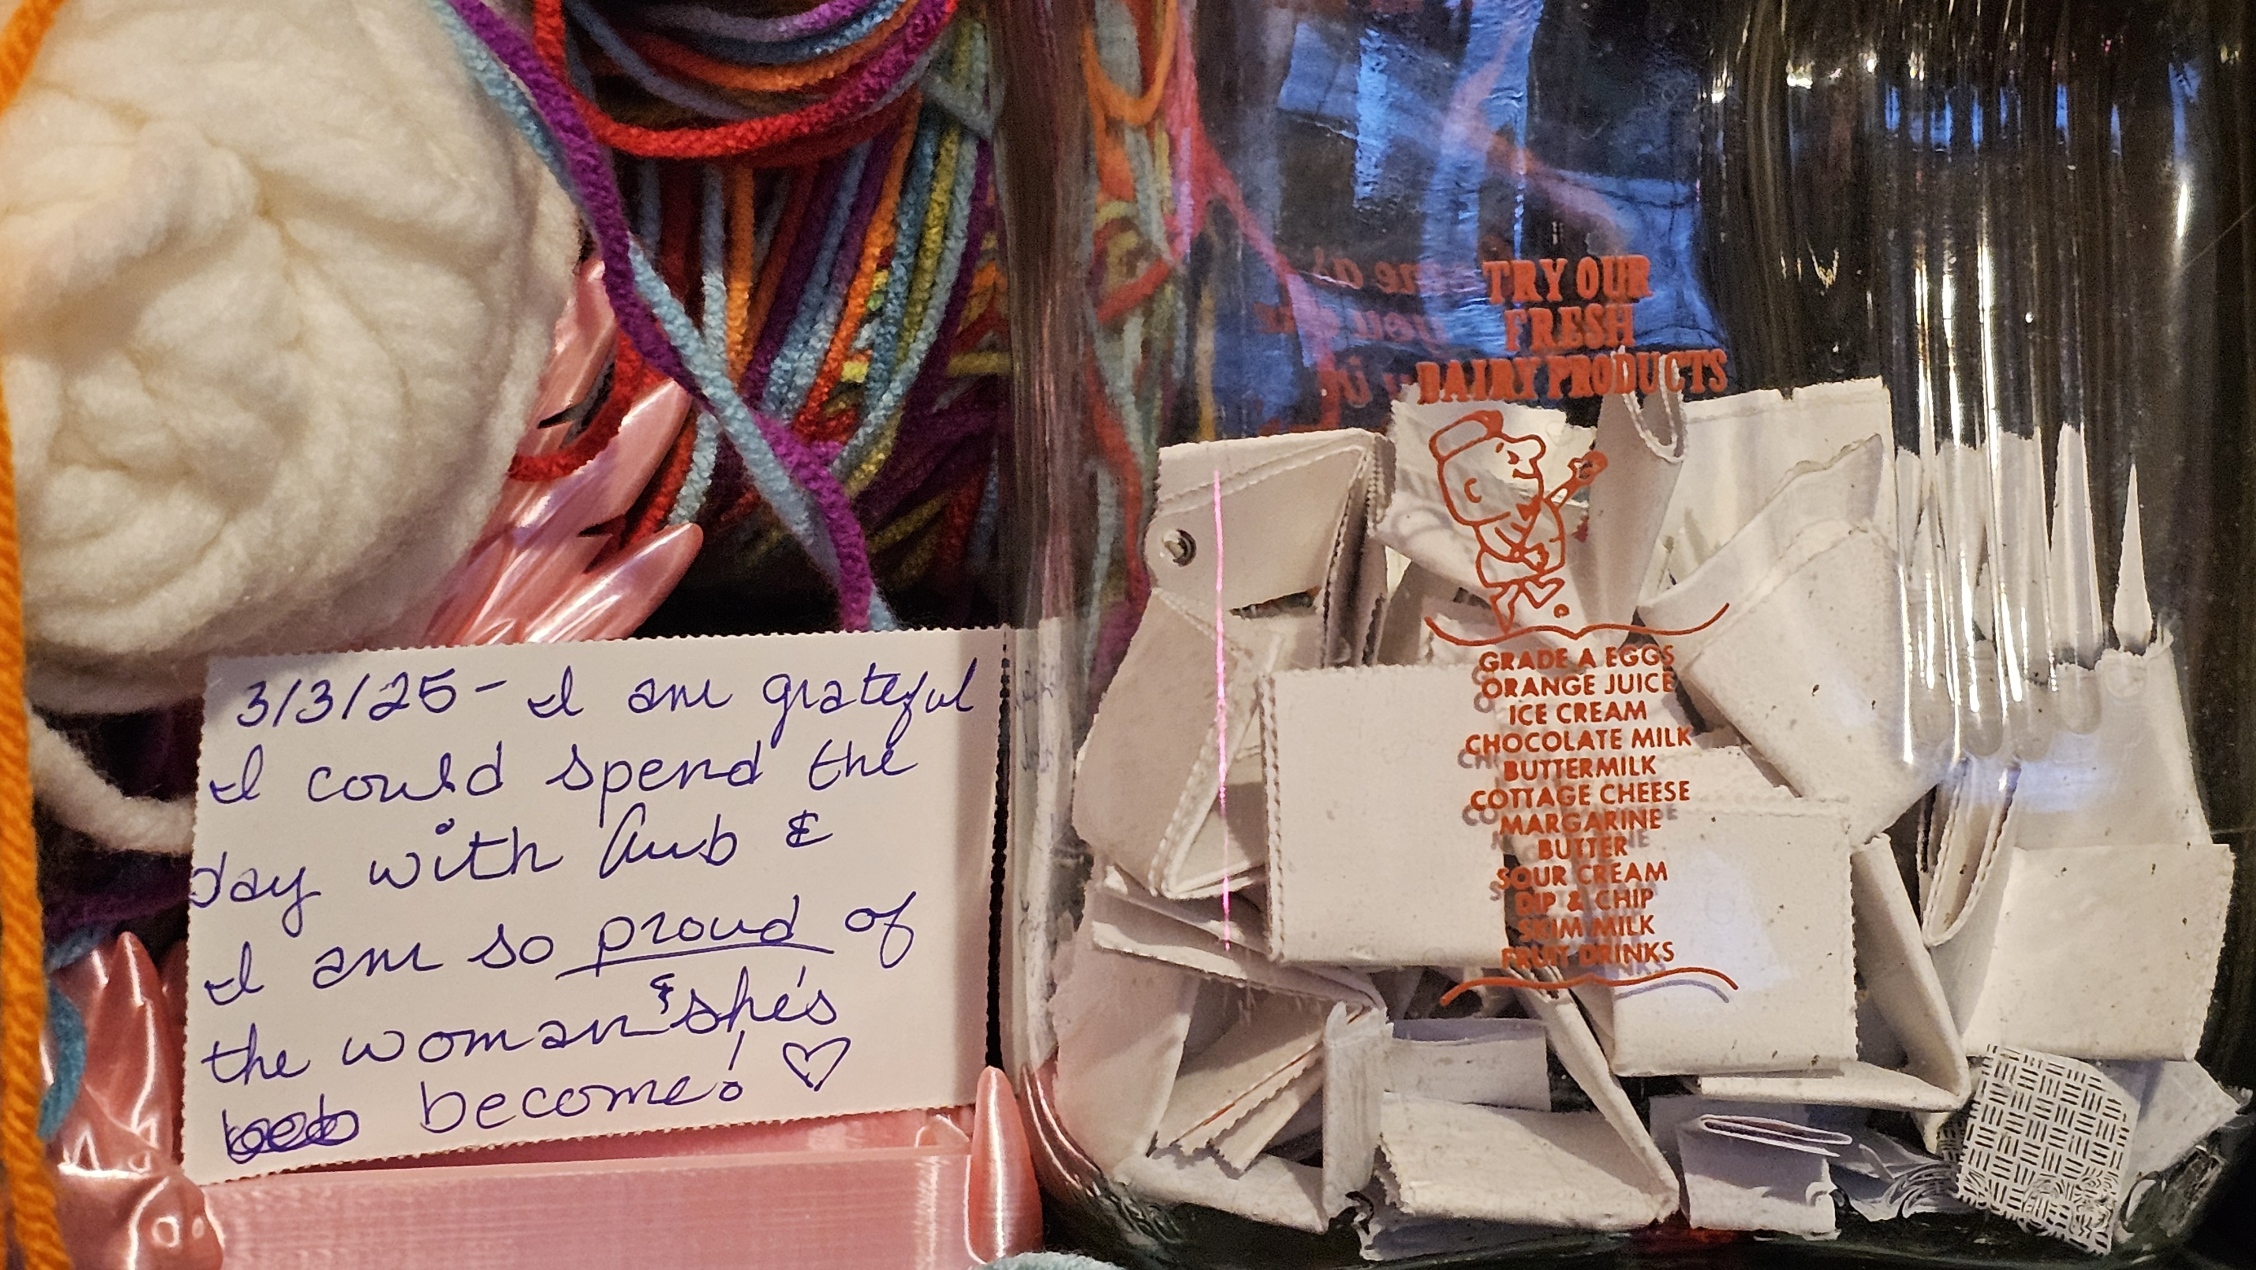 3/3/25 - I am grateful
I could spend the
day with Aub &
I am so proud of
the woman & she's
become! ♡
TRY OUR
FRESH
DAIRY PRODUCTS
GRADE A EGGS
ORANGE JUICE
ICE CREAM
CHOCOLATE MILK
BUTTERMILK
COTTAGE CHEESE
MARGARINE
BUTTER
SOUR CREAM
DIP & CHIP
SKIM MILK
FRUIT DRINKS